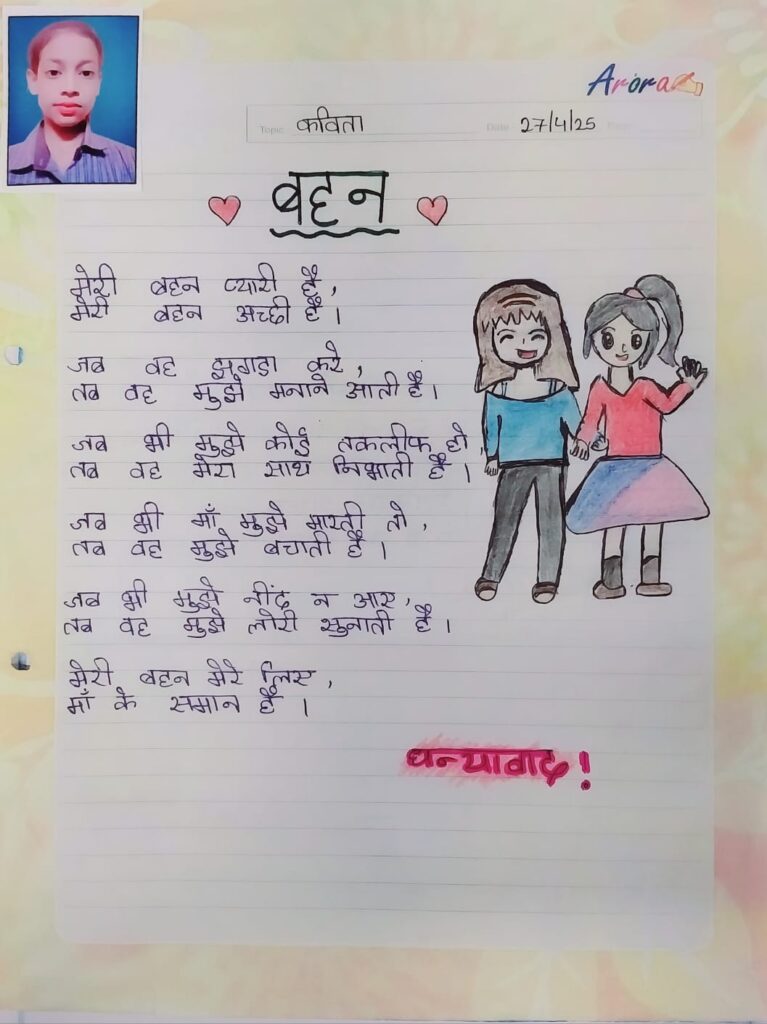 Arora
Topic कविता Date 27/4/25
बहन
मेरी बहन प्यारी है,
मेरी बहन अच्छी है।
जब वह झगडा करे,
तब वह मुझे मनाने आती है।
जब भी मुझे कोई तकलीफ हो,
तब वह मेरा साथ निभाती है।
जब भी माँ मुझे मारती तो,
तब वह मुझे बचाती है।
जब भी मुझे नींद न आए,
तब वह मुझे लोरी सुनाती है।
मेरी बहन मेरे लिए,
माँ के समान है।
धन्यावाद!